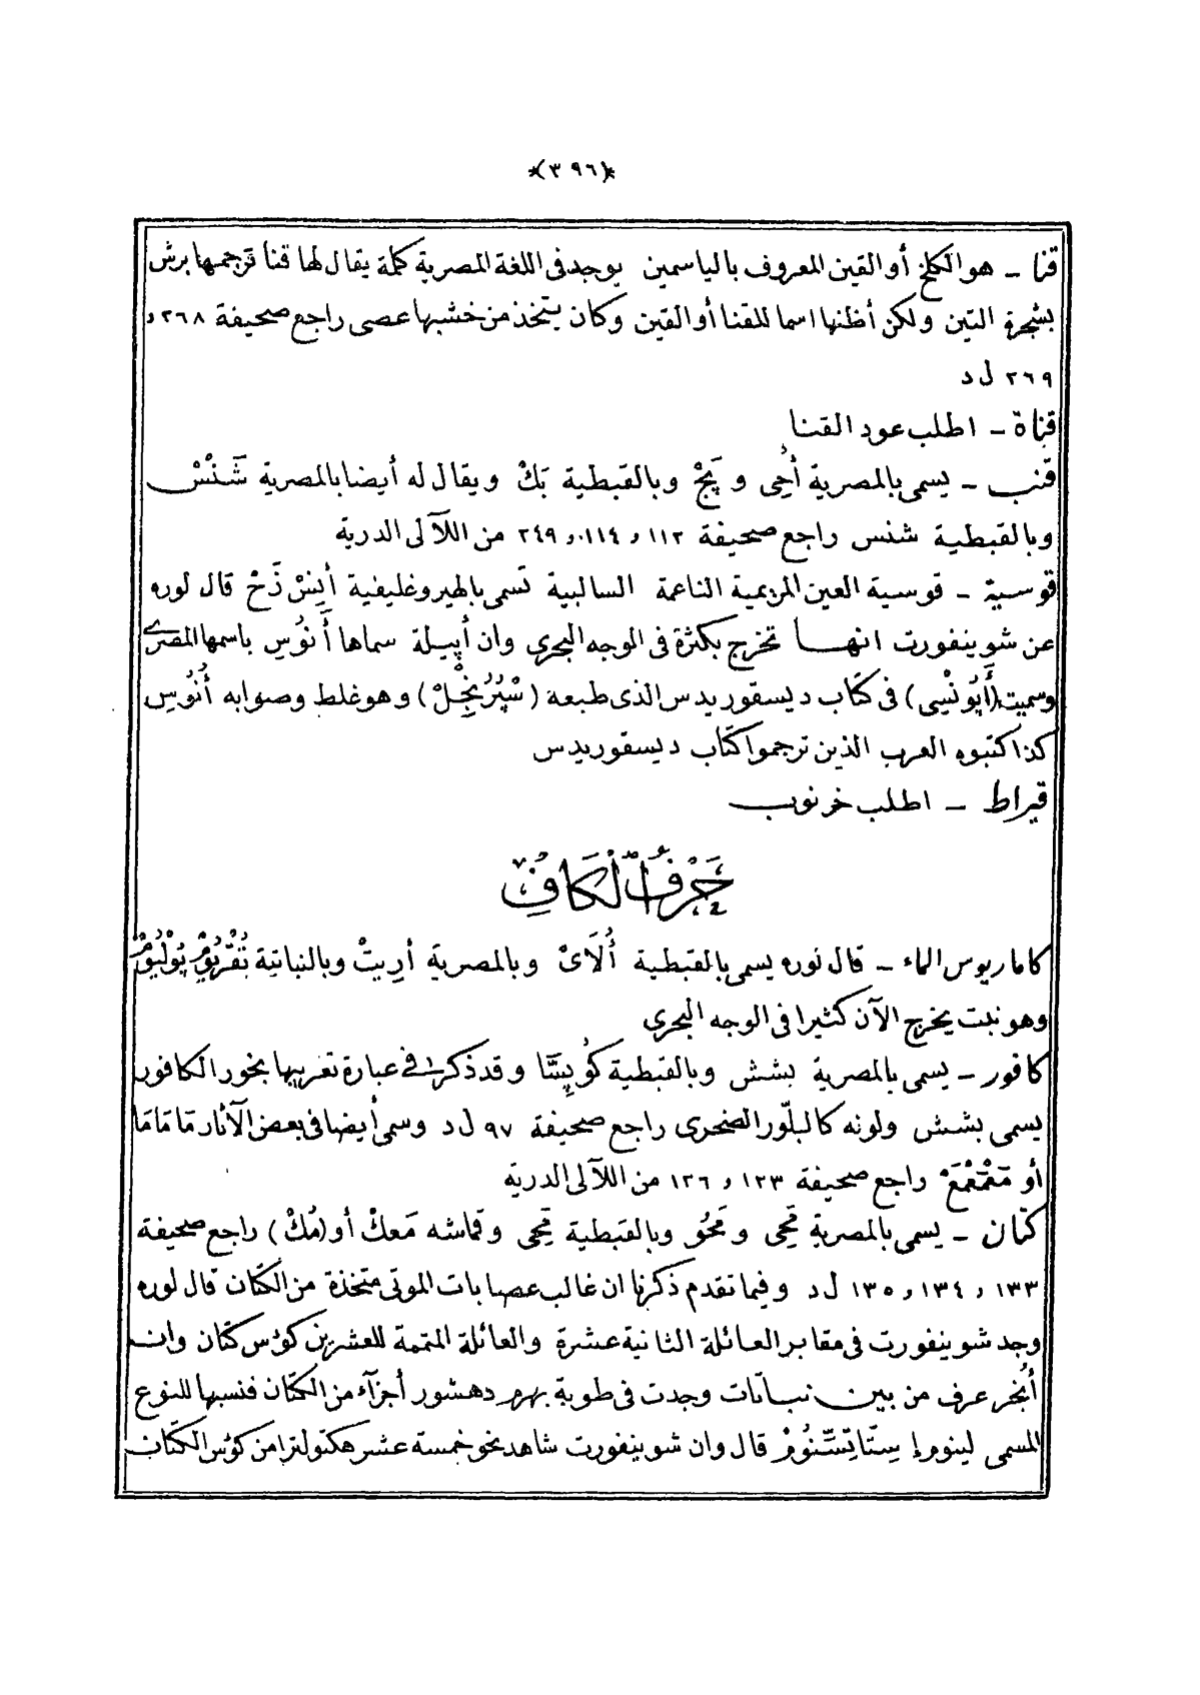 *(٣٩٦)*
قنا - هو الكلخ أو القين المعروف بالياسمين يوجد فى اللغة المصرية كلمة يقال لها قنا ترجمها برش
بشجرة التين ولكن أظنها اسما للقنا أو القين وكان يتخذ من خشبها عصى راجع صحيفة ٢٦٨ و
٢٦٩ ل د
قناة - اطلب عود القنا
قنب - يسمى بالمصرية أُحِى و پَجْ وبالقبطية بَكْ ويقال له أيضا بالمصرية شَنْسْ
وبالقبطية شنس راجع صحيفة ١١٢ و ١١٤ و ٢٤٩ من اللآلى الدرية
قوسية - قوسية العين المريمية الناعمة السالبية تسمى بالهيروغليفية أَيِسْ ذَخْ قال لوره
عن شوينفورت انها تخرج بكثرة فى الوجه البحرى وان أپيلة سماها أَنوُسِ باسمها المصرى
وسميت (أَپُونْسِى) فى كتاب ديسقوريدس الذى طبعه (سْپُرُنْجِلْ) وهو غلط وصوابه أَنوُسِ
كذا كتبوه العرب الذين ترجموا كتاب ديسقوريدس
قيراط - اطلب خرنوب
حَرْفُ الْكَافِ
كاماريوس الماء - قال لوره يسمى بالقبطية أُلَاىْ وبالمصرية أَرِيتْ وبالنباتية تُقْرِيُومْ پُولْيُومْ
وهو نبت يخرج الآن كثيرا فى الوجه البحرى
كافور - يسمى بالمصرية بشش وبالقبطية كوُپِسَّا وقد ذكر فى عبارة تعريبها بخور الكافور
يسمى بشش ولونه كالبلّور الصخرى راجع صحيفة ٩٧ ل د وسمى أيضا فى بعض الآثار مَامَامَا
أو مَعْمَعْ راجع صحيفة ١٢٣ و ١٢٦ من اللآلى الدرية
كتّان - يسمى بالمصرية مَحِى و مَحُو وبالقبطية مَحِى وقماشه مَعكْ أو (مُكْ) راجع صحيفة
١٣٣ و ١٣٤ و ١٣٥ ل د وفيما تقدم ذكرنا ان غالب عصابات الموتى متخذة من الكتان قال لوره
وجد شوينفورت فى مقابر العائلة الثانية عشرة والعائلة المتممة للعشرين كؤس كتان وان
أُنْجَر عرف من بين نباتات وجدت فى طوبة بهرم دهشور أجزآء من الكتان فنسبها للنوع
المسمى لينوم إِسِتَاتِسِّنوُمْ قال وان شوينفورت شاهد نحو خمسة عشر هكتولترا من كؤس الكتان